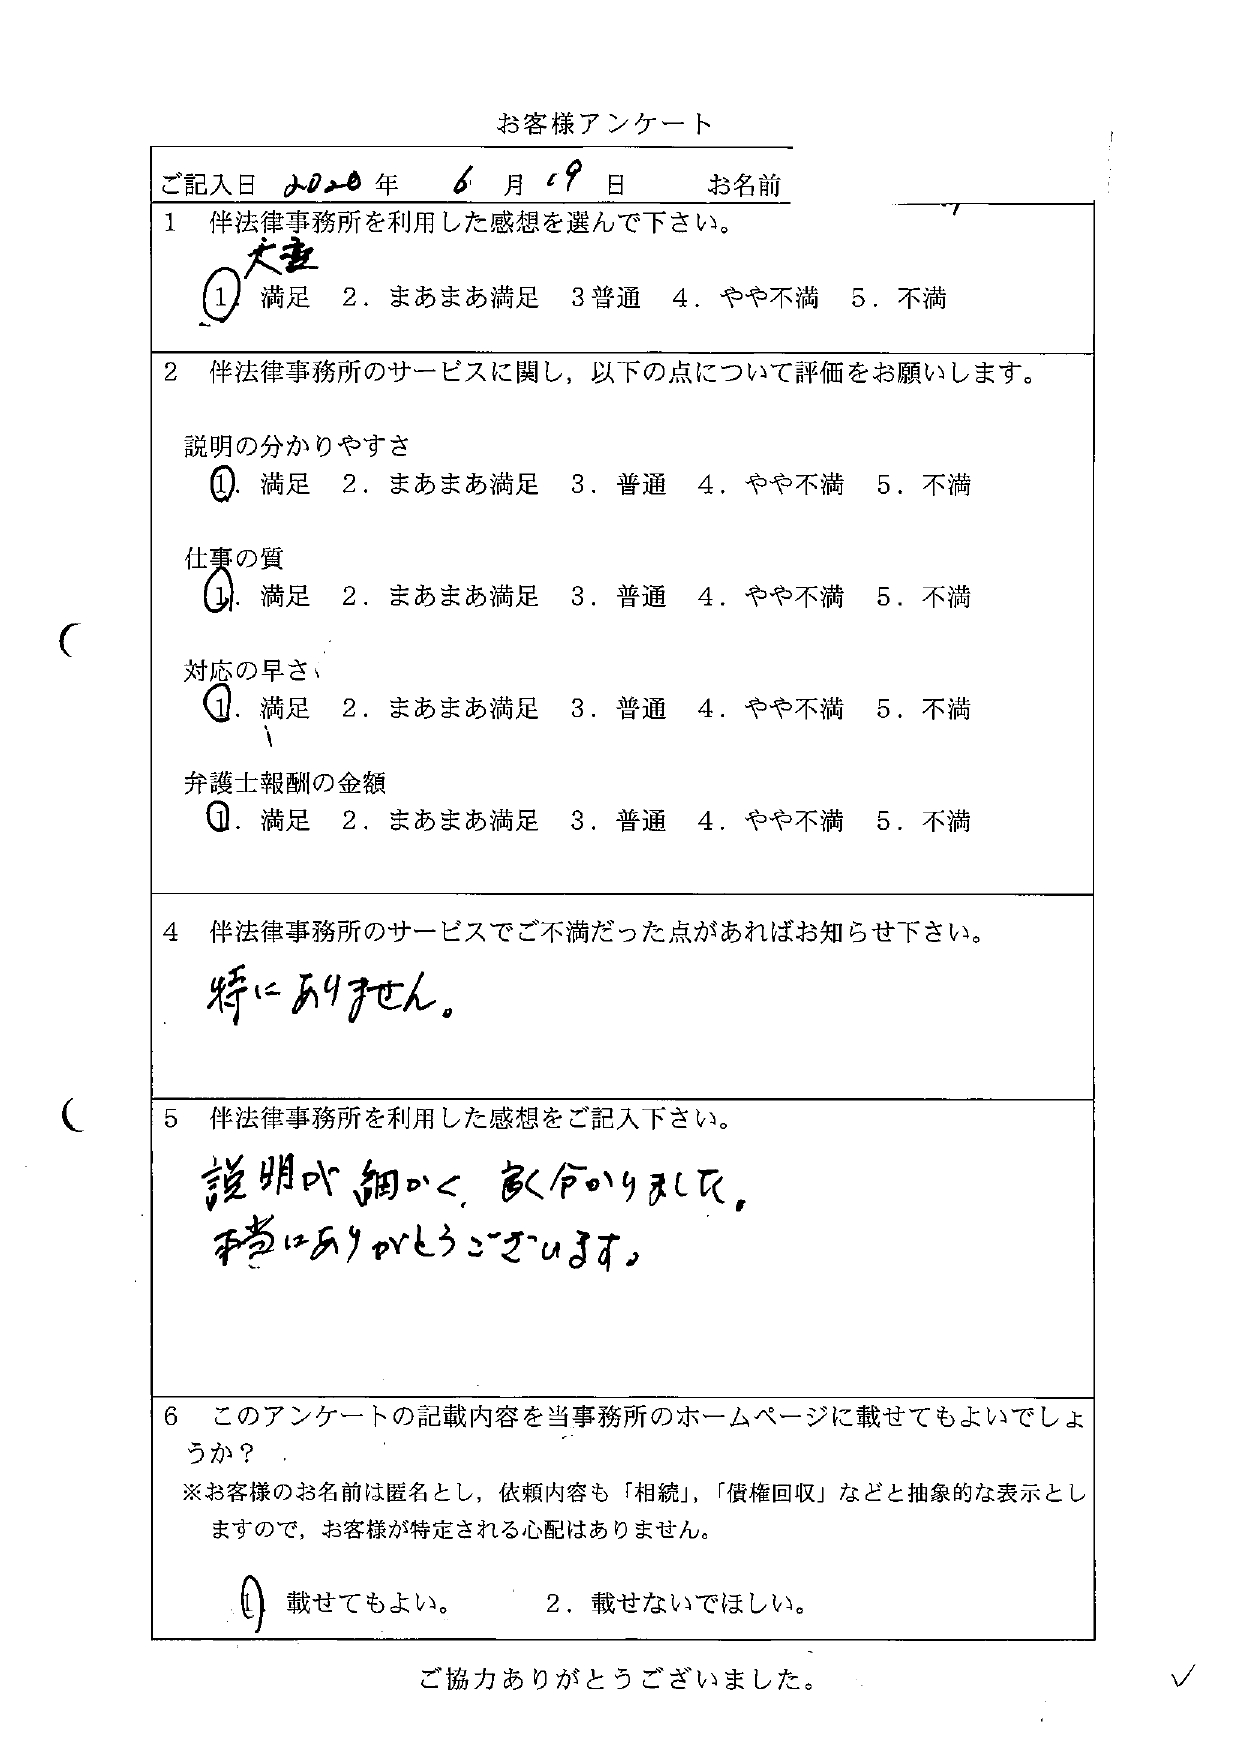 お客様アンケート
ご記入日 2020 年 6 月 19 日 お名前
1 伴法律事務所を利用した感想を選んで下さい。
大変
1. 満足 2. まあまあ満足 3普通 4. やや不満 5. 不満
2 伴法律事務所のサービスに関し,以下の点について評価をお願いします。
説明の分かりやすさ
1. 満足 2. まあまあ満足 3. 普通 4. やや不満 5. 不満
仕事の質
1. 満足 2. まあまあ満足 3. 普通 4. やや不満 5. 不満
対応の早さ
1. 満足 2. まあまあ満足 3. 普通 4. やや不満 5. 不満
弁護士報酬の金額
1. 満足 2. まあまあ満足 3. 普通 4. やや不満 5. 不満
4 伴法律事務所のサービスでご不満だった点があればお知らせ下さい。
特にありません。
5 伴法律事務所を利用した感想をご記入下さい。
説明が細かく、良く分かりました。
本当にありがとうございます。
6 このアンケートの記載内容を当事務所のホームページに載せてもよいでしょ
うか?
※お客様のお名前は匿名とし,依頼内容も「相続」,「債権回収」などと抽象的な表示とし
ますので,お客様が特定される心配はありません。
1 載せてもよい。 2. 載せないでほしい。
ご協力ありがとうございました。